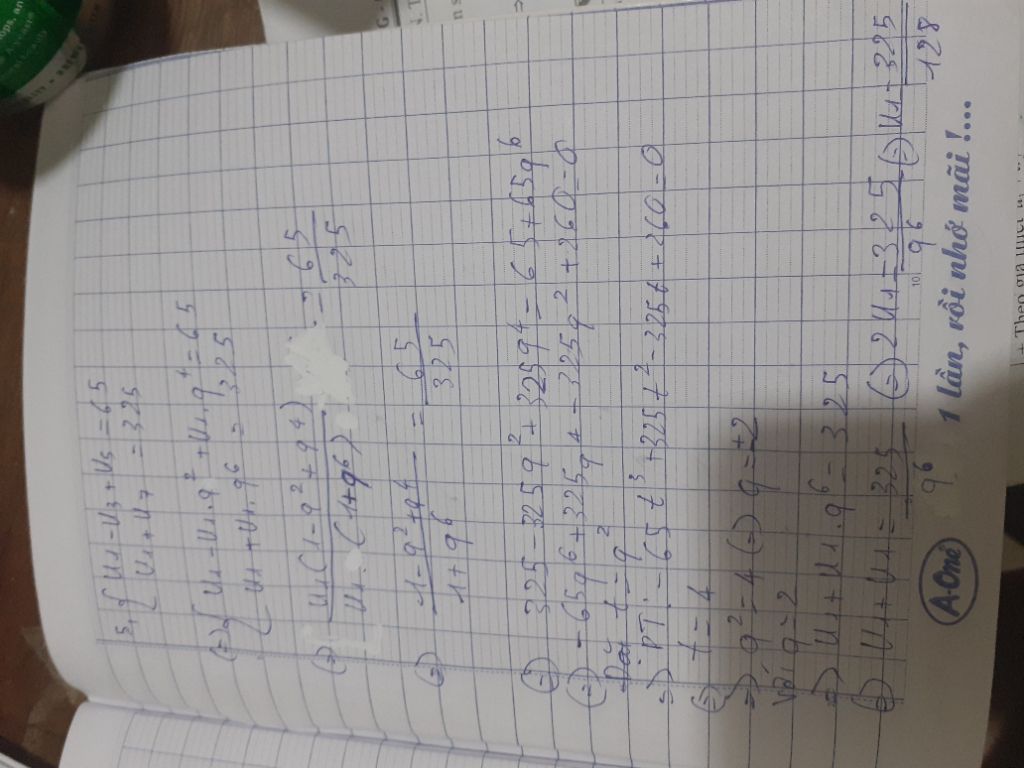 5, { u1 - u3 + u5 = 65
u1 + u7 = 325
(=) { u1 - u1.q² + u1.q⁴ = 65
u1 + u1.q⁶ = 325
(=) u1(1 - q² + q⁴) / u1.(1 + q⁶) = 65/325
(=) 1 - q² + q⁴ / 1 + q⁶ = 65/325
(=) 325 - 325q² + 325q⁴ = 65 + 65q⁶
(=) -65q⁶ + 325q⁴ - 325q² + 260 = 0
Đặt t = q²
=) PT: -65t³ + 325t² - 325t + 260 = 0
(=) t = 4
=) q² = 4 (=) q = ±2
Với q = 2
=) u1 + u1.q⁶ = 325
(=) u1 + u1 = 325/q⁶ (=) 2u1 = 325/q⁶ (=) u1 = 325/128
10
A-One 1 lần, rồi nhớ mãi !....